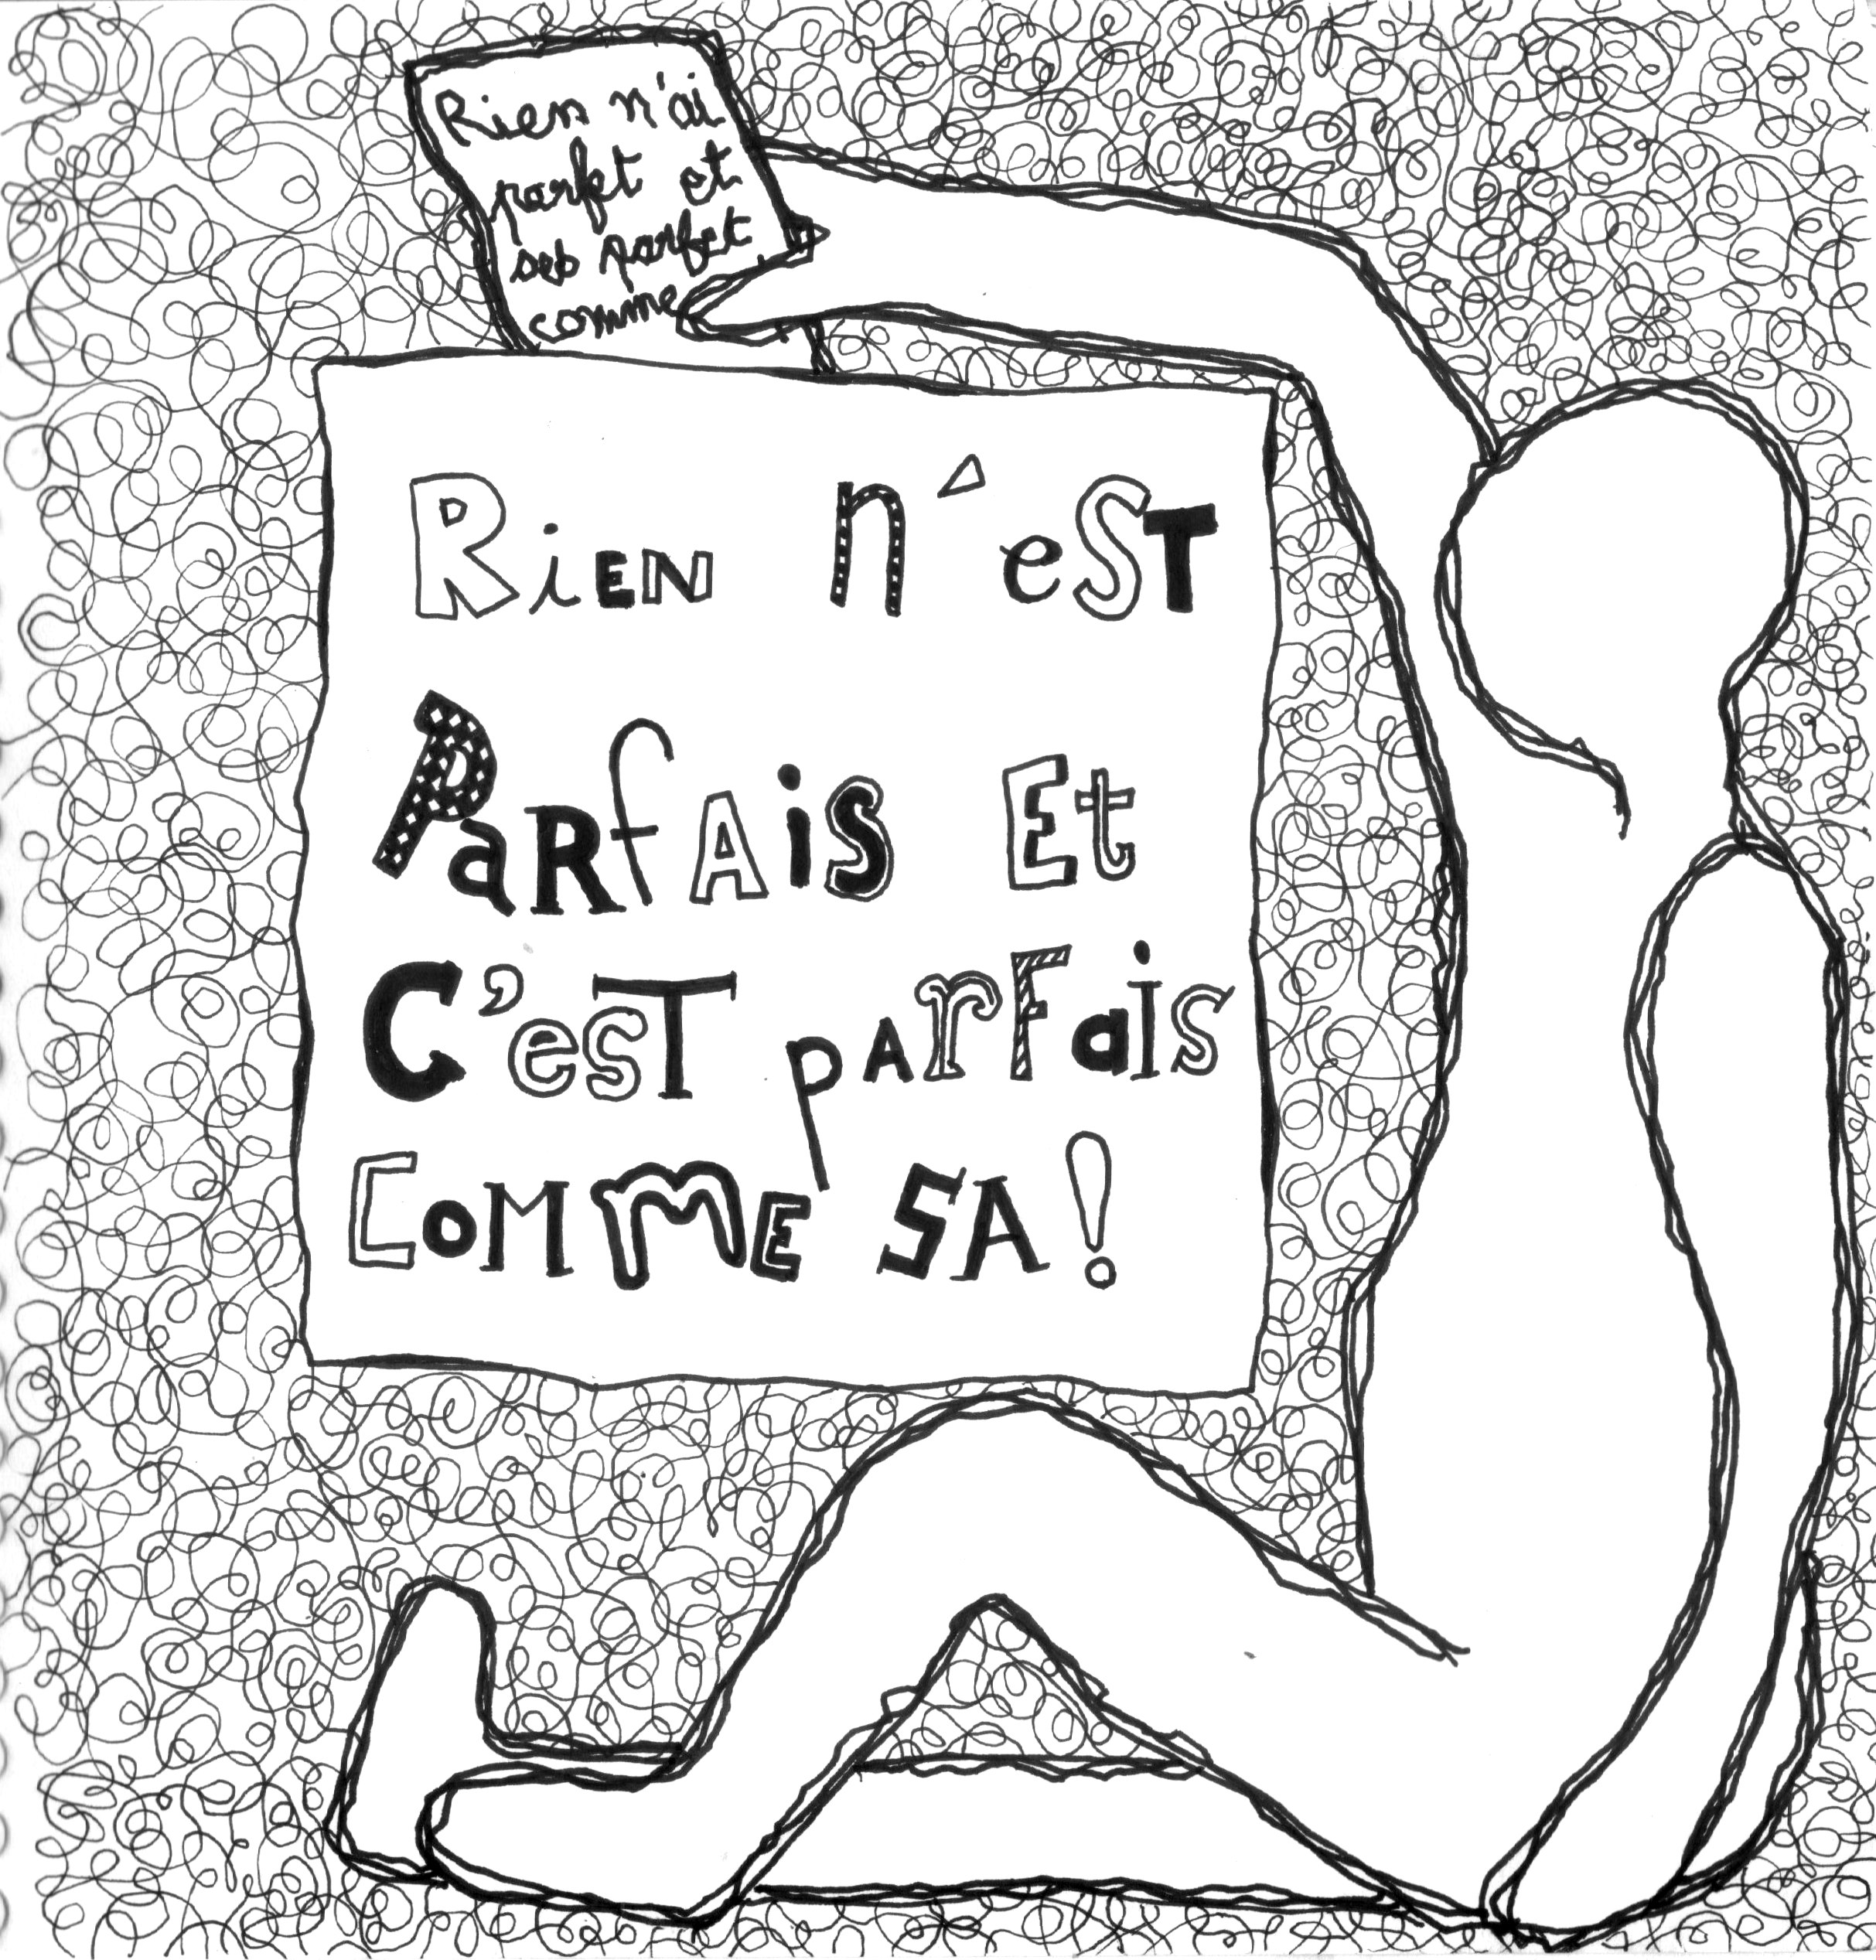 Rien n'ai
parfet et
seb parfet
comme
RiEN n'eST
ParfAis Et
C'esT pArFais
COMME SA!